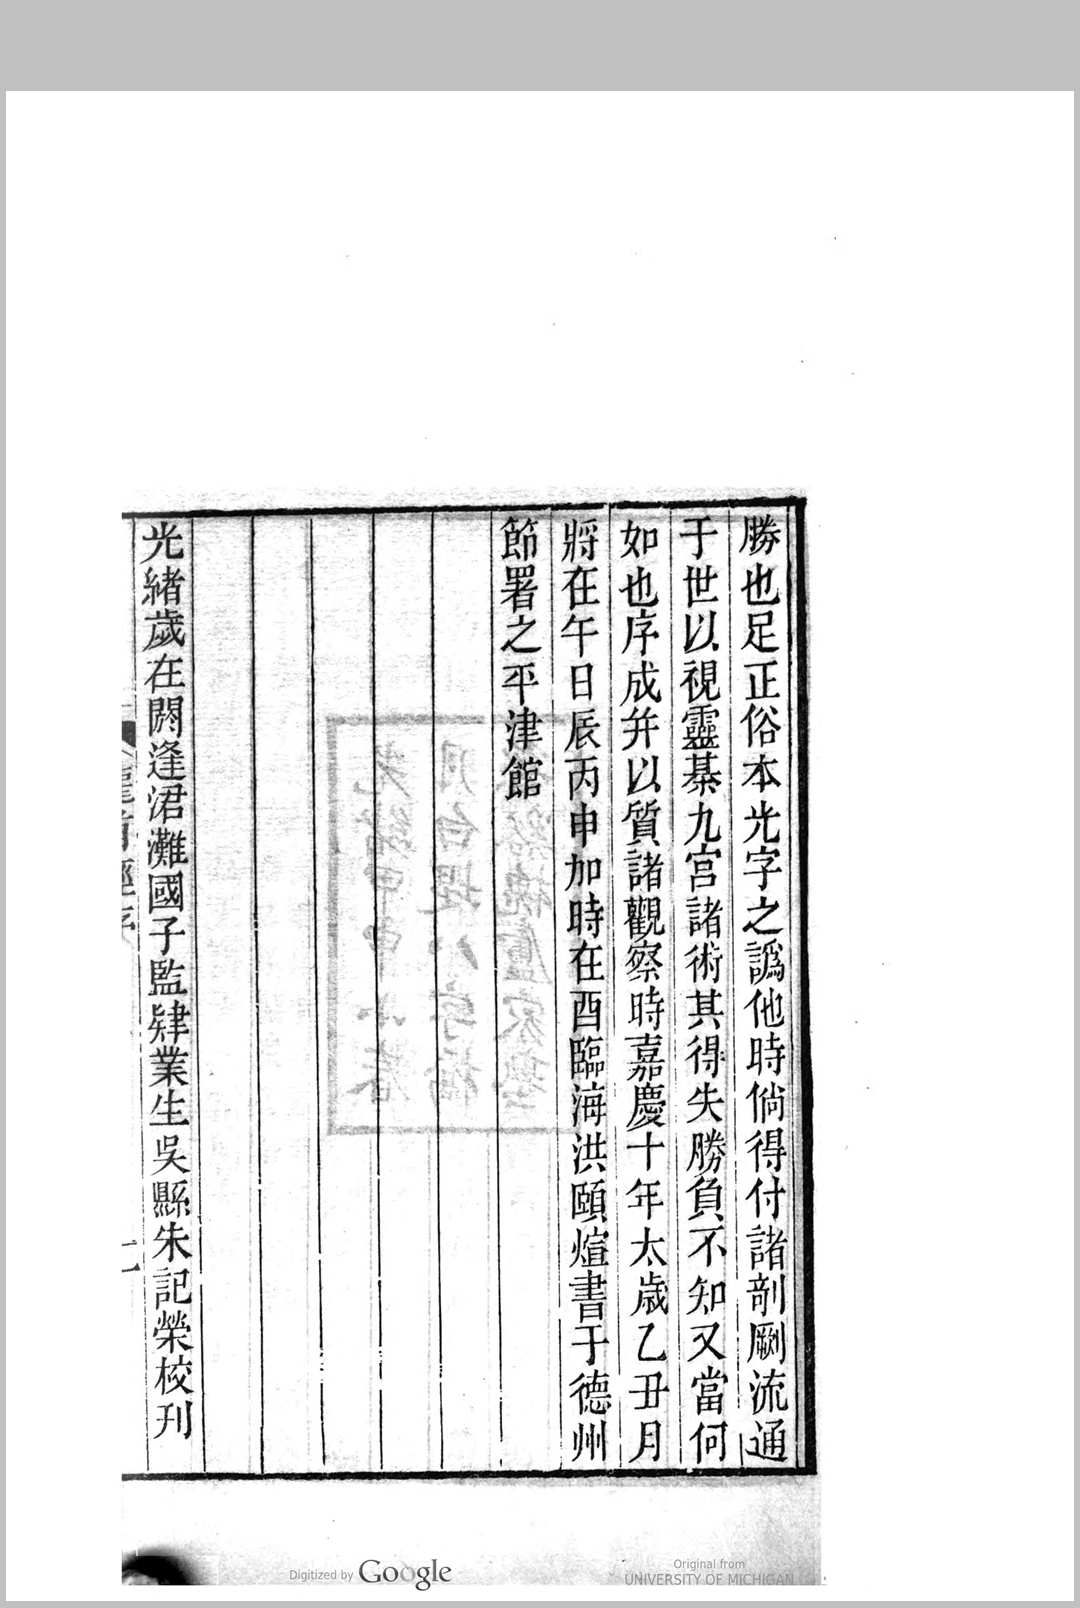 勝也足正俗本光字之譌他時倘得付諸剞劂流通
于世以視靈棊九宮諸術其得失勝負不知又當何
如也序成并以質諸觀察時嘉慶十年太歲乙丑月
將在午日辰丙申加時在酉臨海洪頤煊書于德州
節署之平津館
光緒歲在閼逢涒灘國子監肄業生吳縣朱記榮校刊
龍首經序
Digitized by Google
Original from
UNIVERSITY OF MICHIGAN